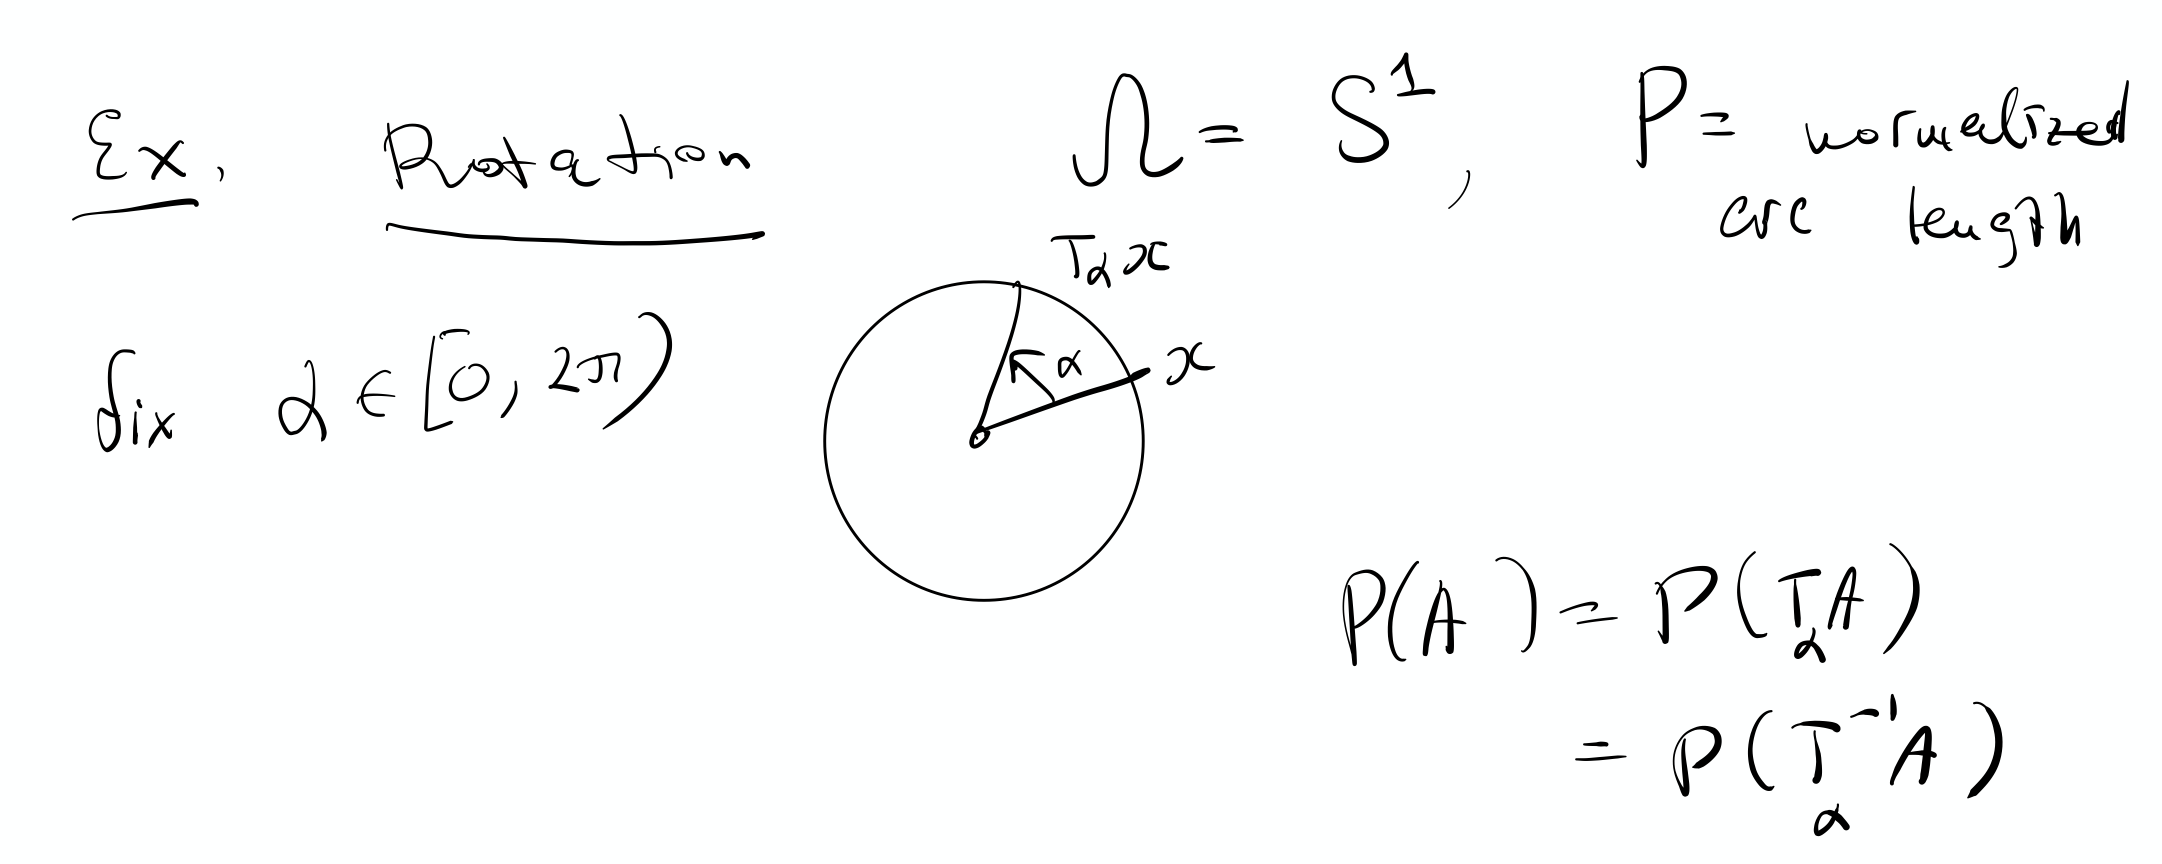 Ex. Rotation Ω = S¹, P = normalized
arc length
T_α x
fix α ∈ [0, 2π)
α x
P(A) = P(T_α A)
= P(T_α⁻¹ A)